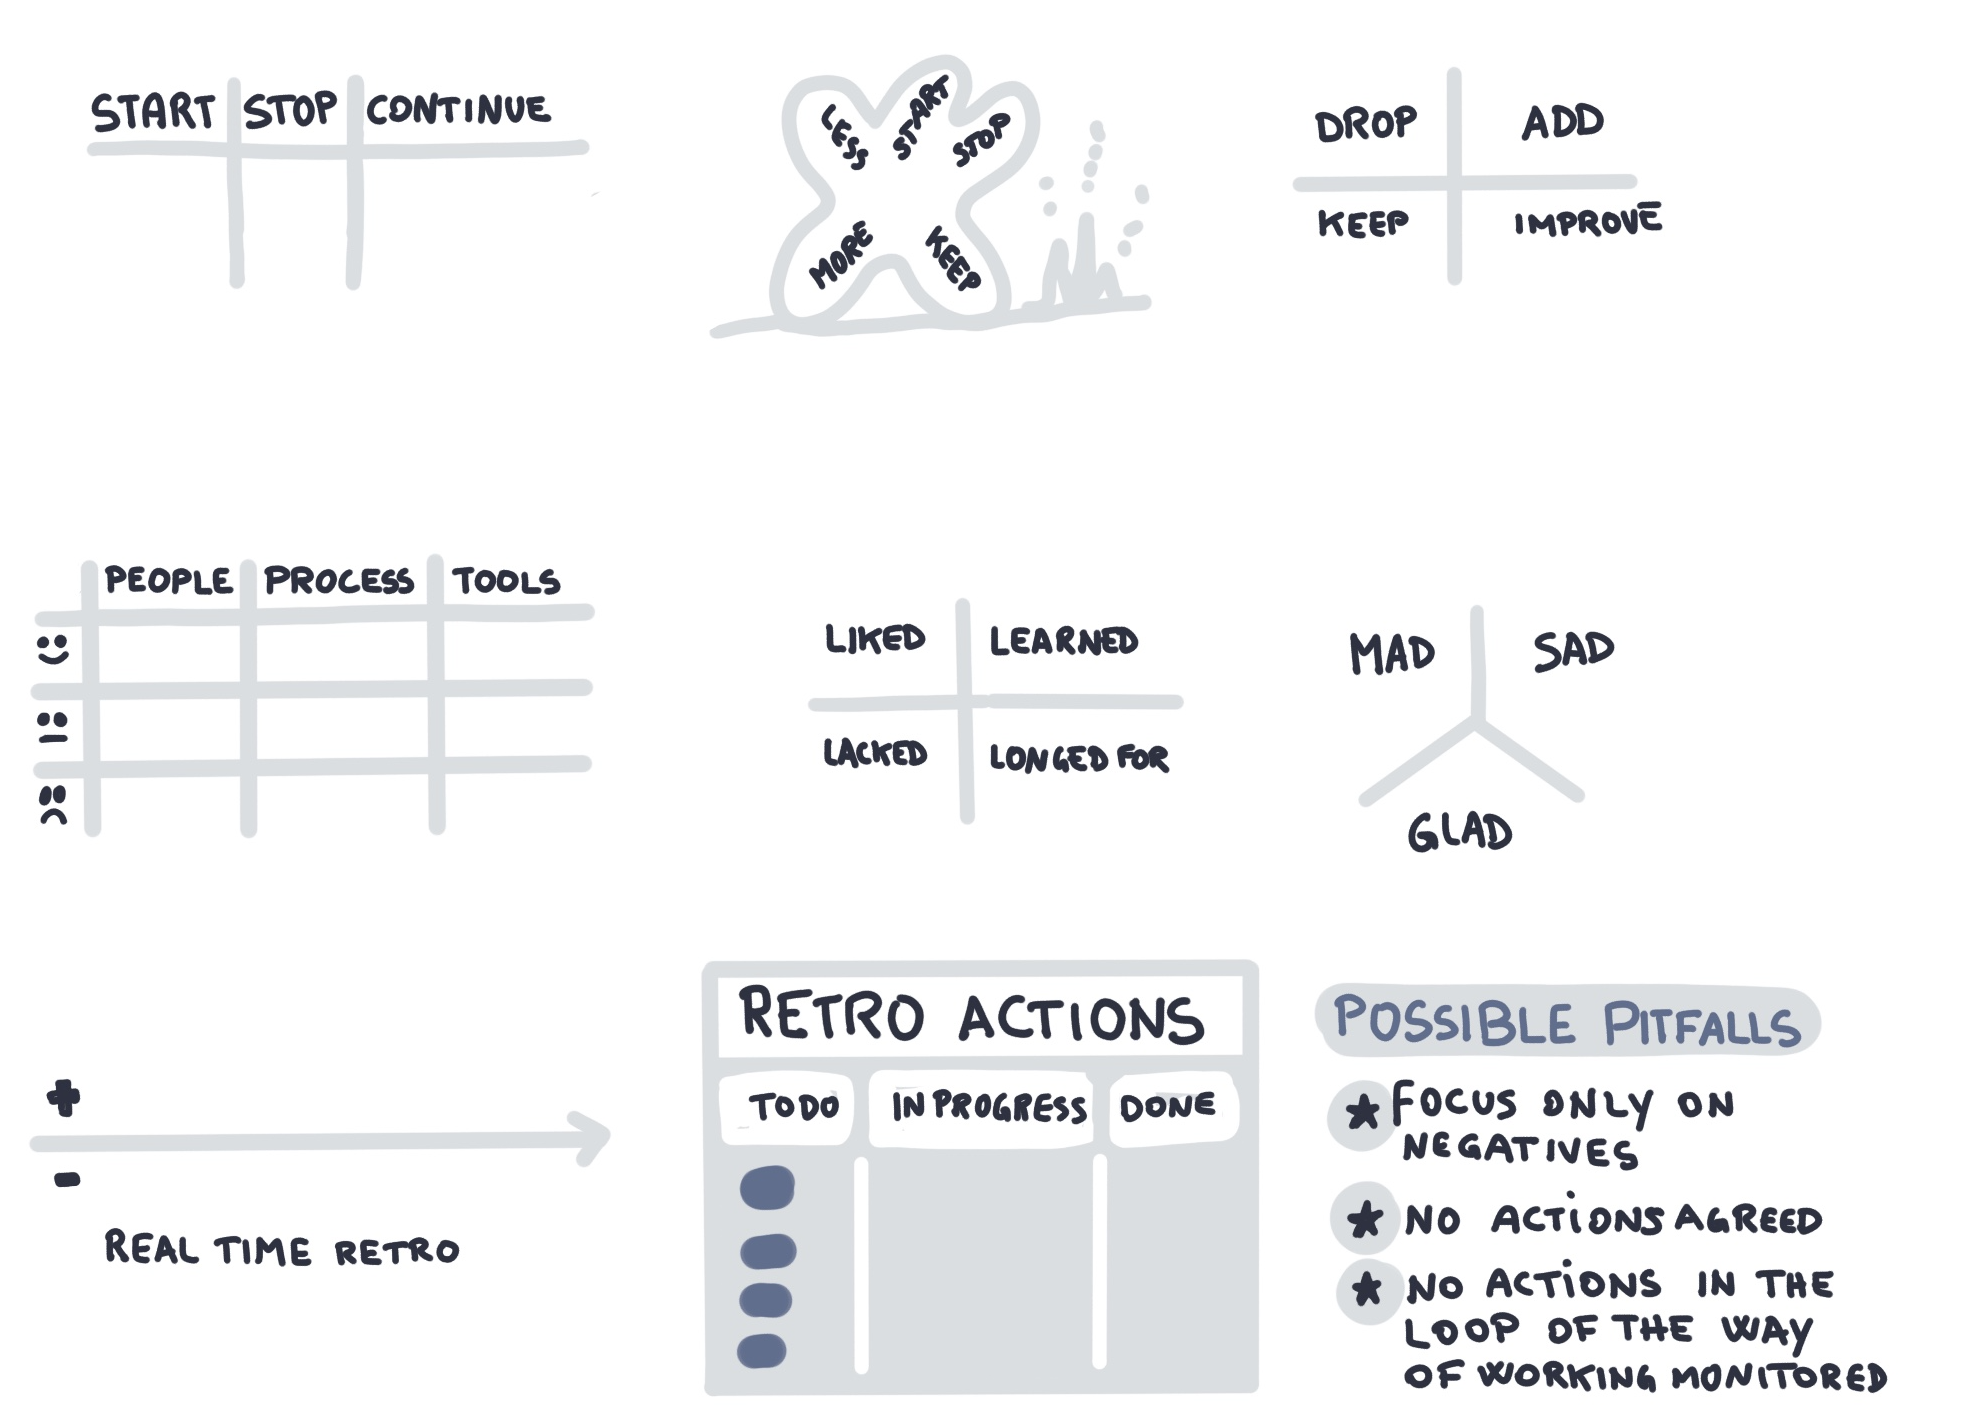 START STOP CONTINUE
LESS
START
STOP
MORE
KEEP
DROP ADD
KEEP IMPROVE
PEOPLE PROCESS TOOLS
LIKED LEARNED
LACKED LONGED FOR
MAD SAD
GLAD
+
-
REAL TIME RETRO
RETRO ACTIONS
TODO IN PROGRESS DONE
POSSIBLE PITFALLS
FOCUS ONLY ON
NEGATIVES
NO ACTIONS AGREED
NO ACTIONS IN THE
LOOP OF THE WAY
OF WORKING MONITORED